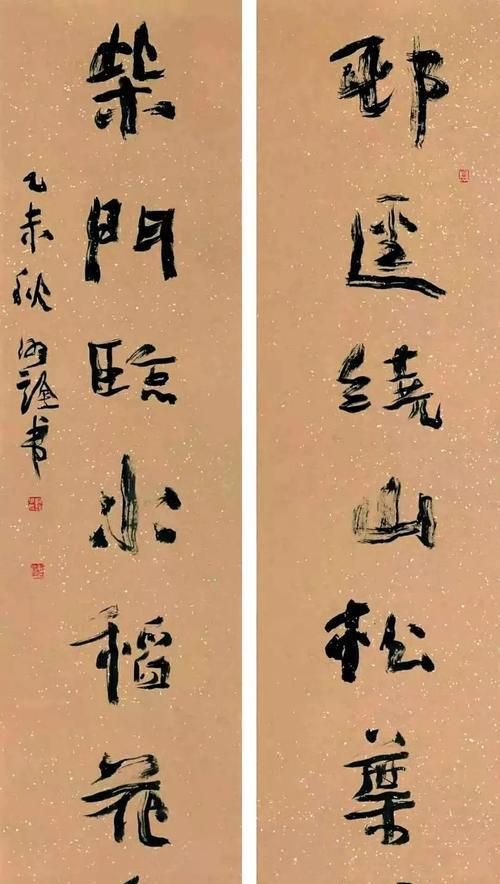 邨逕繞山松葉
柴門臨水稻花
乙未秋 书